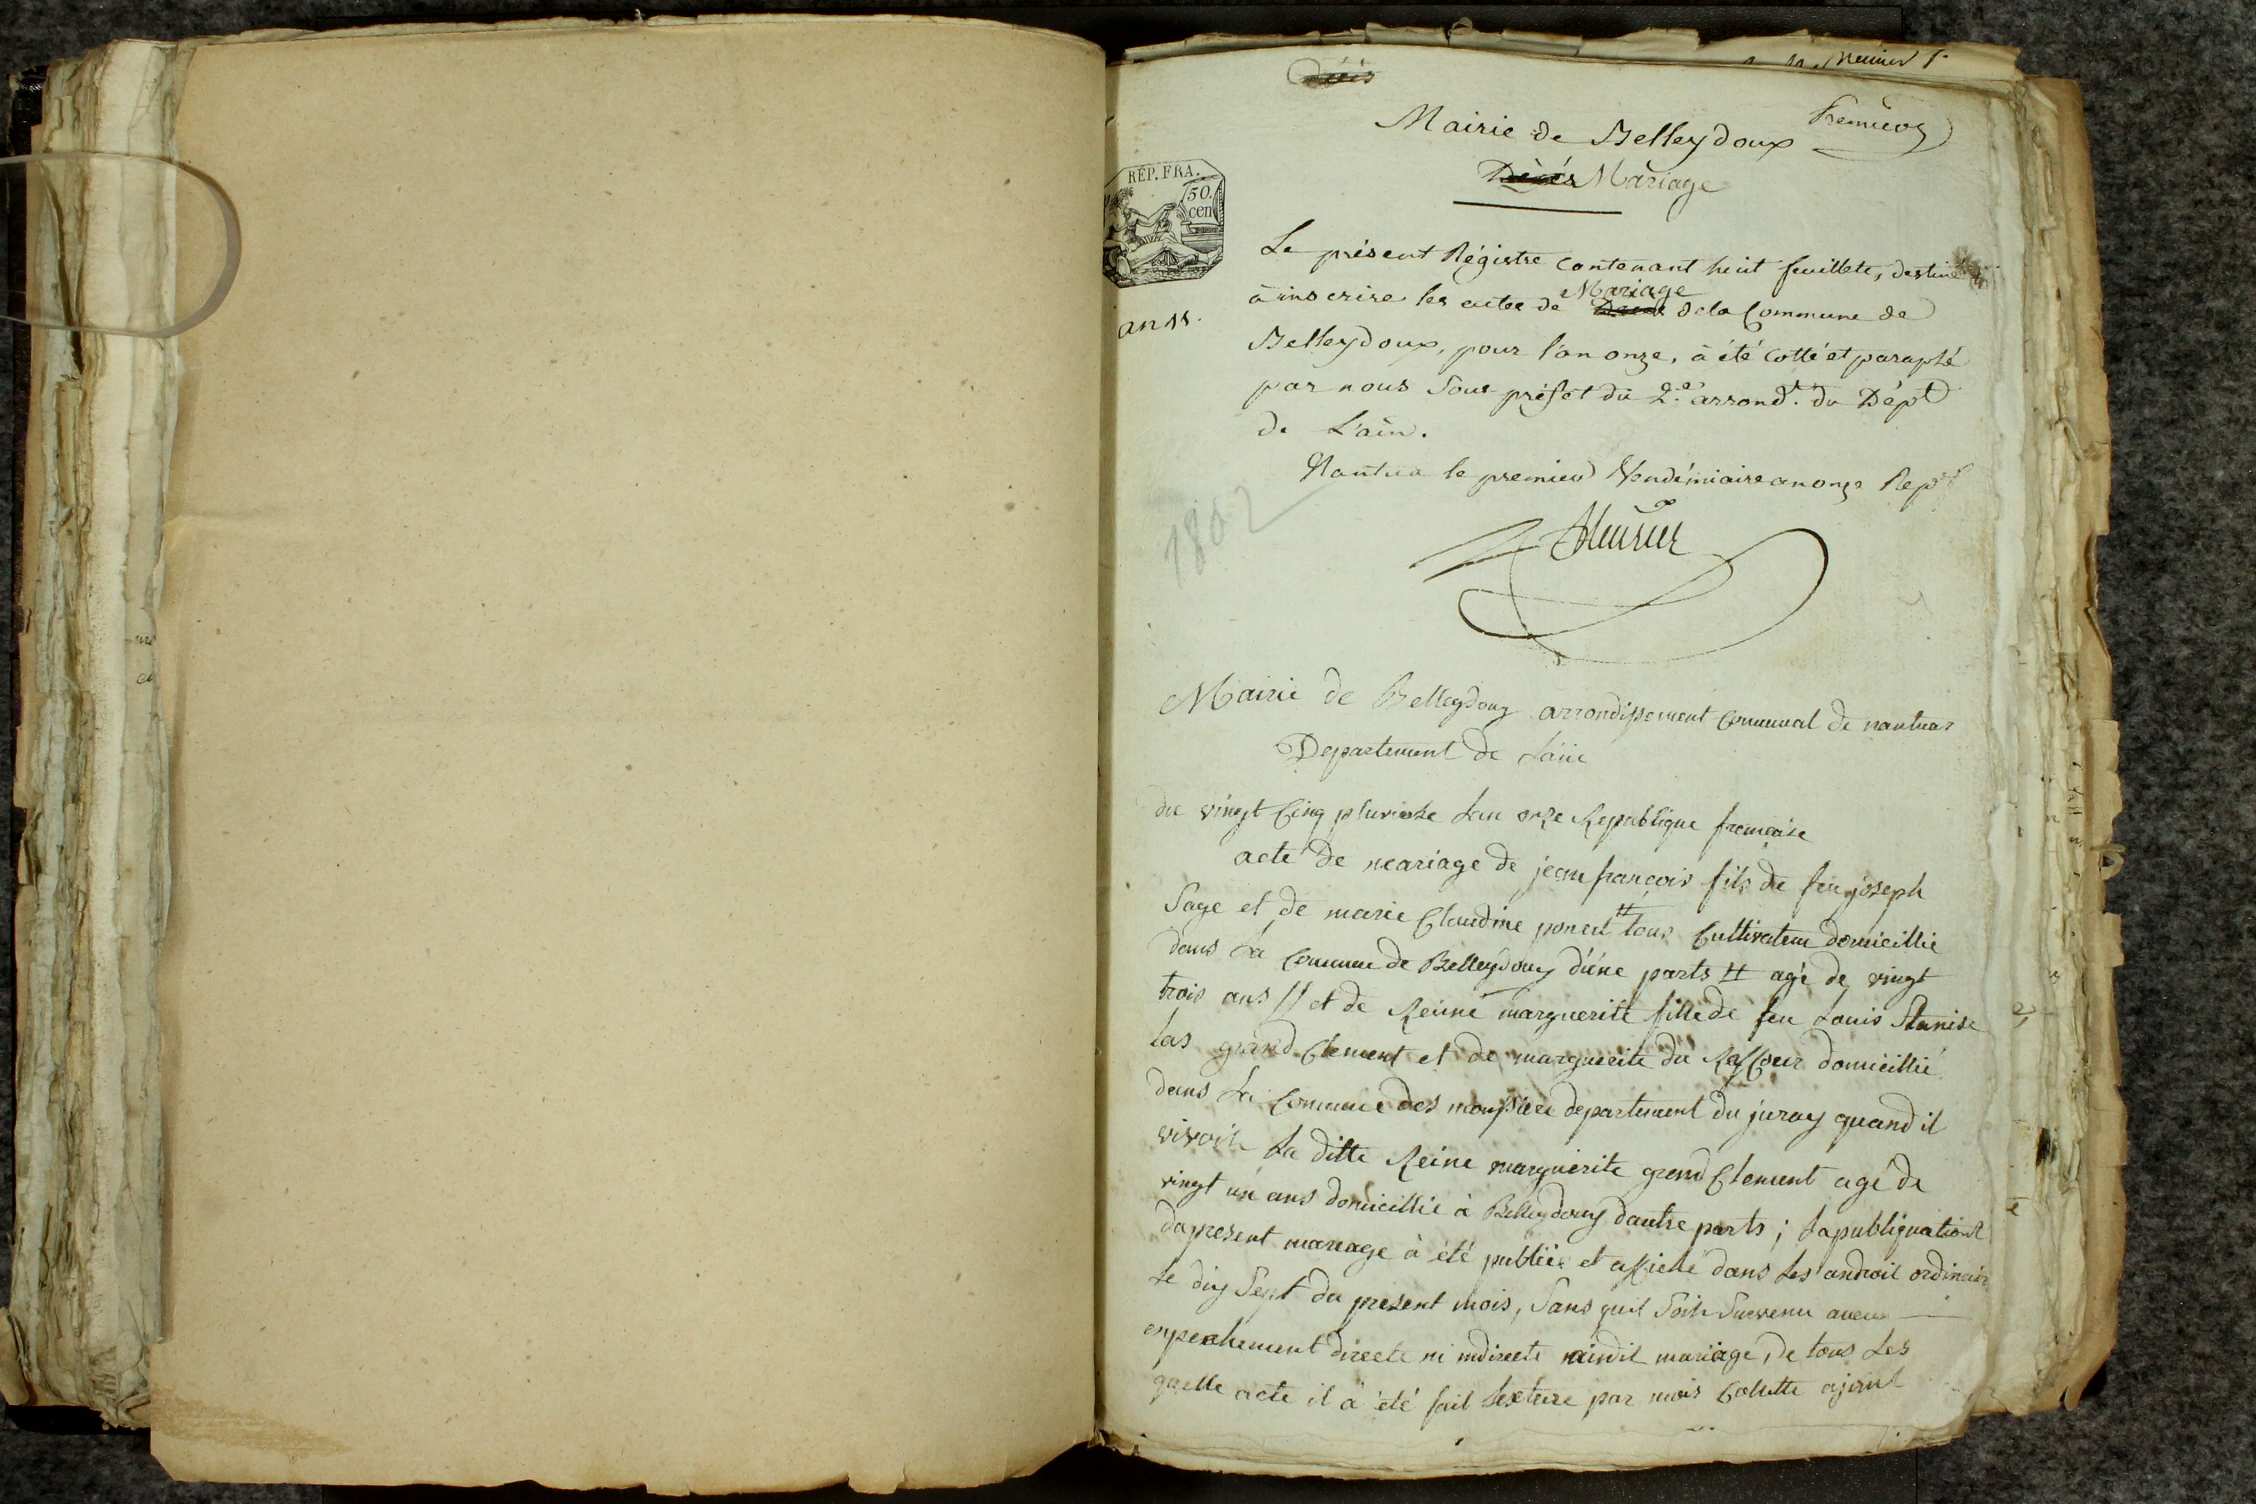 Mairie de Belleydoux
Premier
Décès Mariage
RÉP. FRA.
50.
cen
an 11.
Le présent Régistre contenant huit feuillets, destiné
à inscrire les actes de Mariage de la Commune de
Belleydoux, pour l'an onze, à été cotté et paraphé
par nous Sous préfet du 2.e arrond.t du Dépt
de L'ain.
Nantua le premier Vendémiaire an onze Rep.
1802
Mairie de Belleydoux arrondissement communal de nantua
Departement de Lain
du vingt Cinq pluviose Lan onze Republique francaise
acte de mariage de jean françois fils de feu joseph
Sage et de marie Claudine poncet tous Cultivateur domicillié
dans La Commune de Belleydoux d'une parts agé de vingt
trois ans et de Reine marguerite fille de feu Louis Stanise
las grand Clement et de marguerite du domicillié
dans La Commune des departement du juray quand il
vivoit La ditte Reine marguerite grand Clement agé de
vingt un ans domicillié à Belleydoux dautre parts ; La publiquationt
du present mariage à été publiée et afiché dans Les androit ordinair
Le dix Sept du present mois, Sans quil Soit Survenu aucun
enpechement directe ni indirecte audit mariage, de tous Les
quelle acte il a été fait Lexture par mois Collette ajoint